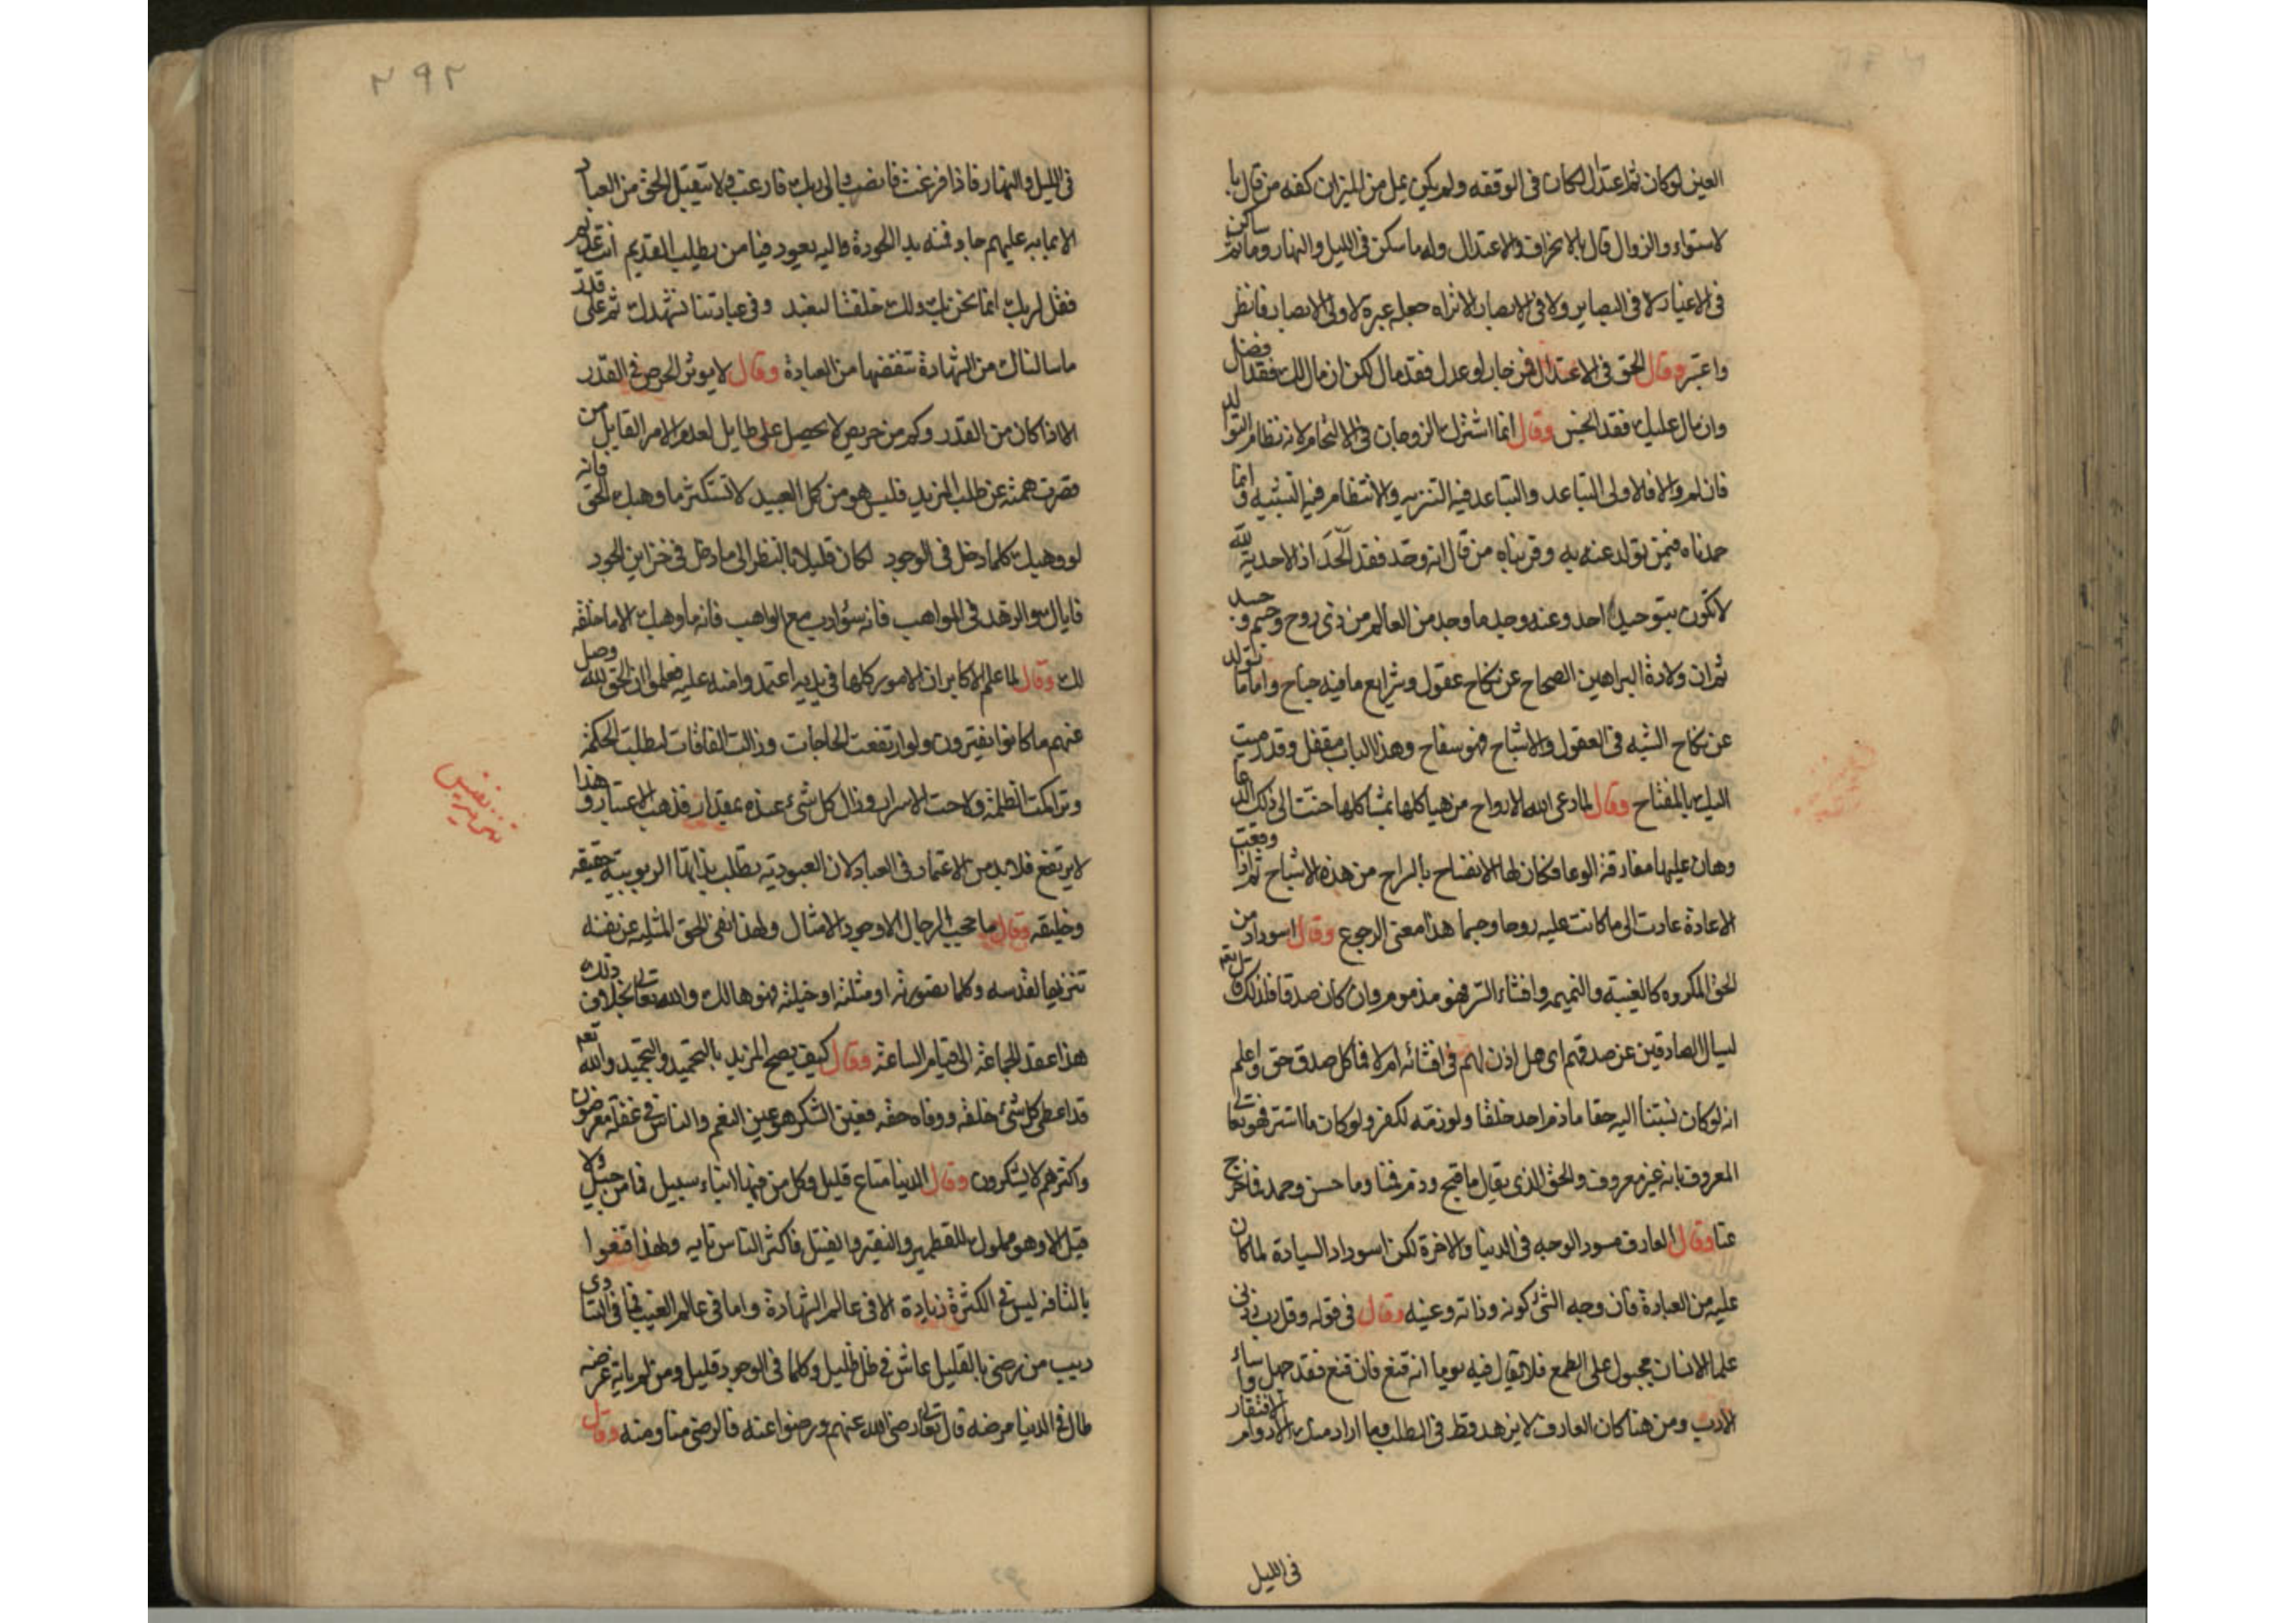 العين لو كان ثم اعتدال لكان فى الوقفه ولم يكن يميل من الميزان كفه من قال با
لاستواء والزوال قال بالانحراف والاعتدال وله ما سكن فى الليل والنهار وما ثم ساكن
فى الاغيار لا فى البصاير ولا فى الابصار الا تراه جعله عبرة لاولى الابصار فانظر
واعتبر وقال الحق فى الاعتدال فمن جار او عدل فقد مال لكن ان مال لك فقد افضل
وان مال عليك فقد ابخس وقال انما اشترك الزوجان فى الالتحام لانه نظام التوالد
فان لم والا فالاولى التباعد والتباعد فيه التنزيه والانتظام فيه التشبيه وانما
حمدناه فيمن تولد عنه به وقربناه من قال انه وحد فقد الحد اذ الاحدية لله
لا تكون بتوحيد احد وعنه وجد ما وجد من العالم من ذى روح وجسم وجسد
ثم ان ولادة البراهين الصحاح عن نكاح عقول وشرايع ما فيه جناح واما ما تولد
عن نكاح الشبه فى العقول والاشباح فهو سفاح وهذا الباب مقفل وقد رميت
اليك بالمفتاح وقال لما دعى الله الارواح من هياكلها بمشاكلها حنت الى ذلك الدعا
وهان عليها مفارقة الوعا فكان لها الانفساح بالسراح من هذه الاشباح ثم اذا وقعت
الاعادة عادت الى ما كانت عليه روحا وجسما هذا معنى الرجوع وقال اسوداد من
الحق المكروه كالغيبة والنميمه وافشاء السر فهو مذموم وان كان صدقا فلذلك قال تعم
ليسال الصادقين عن صدقهم اى هل اذن لهم فى افشائه ام لا فما كل صدق حق واعلم
انه لو كان نسبتنا اليه حقا ما ذم احد خلقا ولو ذمه لكفر ولو كان ما استتر فهو تعالى
المعروف بانه غير معروف والحق الذى يقال ما قبح وذم فمنا وما حسن وحمد فما خرج
عنا وقال العارف مسود الوجه فى الدنيا والاخرة لكن اسوداد السيادة لما كان
عليه من العبادة فان وجه الشئ كونه وذاته وعينه وقال فى قوله وقل رب زدنى
علما الانسان مجبول على الطمع فلا يقال فيه يوما انه قنع فان قنع فقد جهل واساء
الادب ومن هنا كان العارف لا يزهد قط فى الطلب فما اراد منك الا دوام الافتقار
فى الليل
٢٩٢
فى الليل والنهار فاذا فرغت فانصب والى ربك فارغب ولا يتقبل الحق من العباد
الا بما به عليهم جاد فمنه بدا الجود واليه يعود فيا من يطلب القديم انت عديم
فقل لربك انما نحن بك ولك خلقتنا لنعبد وفى عبادتنا نشهدك ثم على قدر
ما سالناك من الشهادة تنقضها من العبادة وقال لا يوثر الحرص فى القدر
الا اذا كان من القدر وكم من حريص لا يحصل على طايل لعدم الامر القابل من
قصرت همته عن طلب المزيد فليس هو من كل العبيد لا تستكثر ما وهبك الحق فانه
لو وهبك كلما دخل فى الوجود لكان قليلا بالنظر الى ما دخل فى خزاين الجود
فاياك والزهد فى المواهب فانه سؤ ادب مع الواهب فانه ما وهبك الا ما خلقه
لك وقال لما علم الاكابر ان الامور كلها فى يديه اعتمدوا منه عليه فعلموا ان الحق لله وضل
عنهم ما كانوا يفترون ولو ارتفعت الحاجات وزالت الفاقات لبطلت الحكمة
وتراكمت الظلمة ولاحت الاسرار وزال كل شئ عنده بمقدار فذهب الاعتبار وهذا
لا يرتفع فلا بد من الاعتماد فى العباد لان العبودية تطلب بذاتها الربوبية حقيقه
وخليقه وقال ما حجب الرجال الا وجود الامثال ولهذا نفى الحق المثليه عن نفسه
تنزيها لقدسه وكلما تصورته او مثلته او خيلته فهو هالك والله تعالى بخلاف ذلك
هذا عقد الجماعة الى قيام الساعة وقال كيف يصح المزيد بالتحميد والتمجيد والله تعم
قد اعطى كل شئ خلقه ووفاه حقه فعين الشكر هو عين النعم والناس فى غفلة معرضون
واكثرهم لا يشكرون وقال الدنيا متاع قليل وكل من فيها ابناء سبيل فما من جيل ولا
قبيل الا وهو مملوك للقطمير والنقير والفتيل فاكثر الناس تايه ولهذا قنعوا
بالتافه ليس فى الكثرة زيادة الا فى عالم الشهادة واما فى عالم الغيب فما فى التنا دى
ريب من رضى بالقليل عاش فى ظل ظليل وكلما فى الوجود قليل ومن لم ياته غرضه
طال فى الدنيا مرضه قال تعالى رضى الله عنهم ورضوا عنه فالرضى منا ومنه وقال